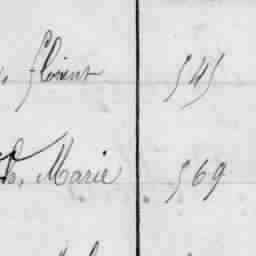 florent 545
Marie 569